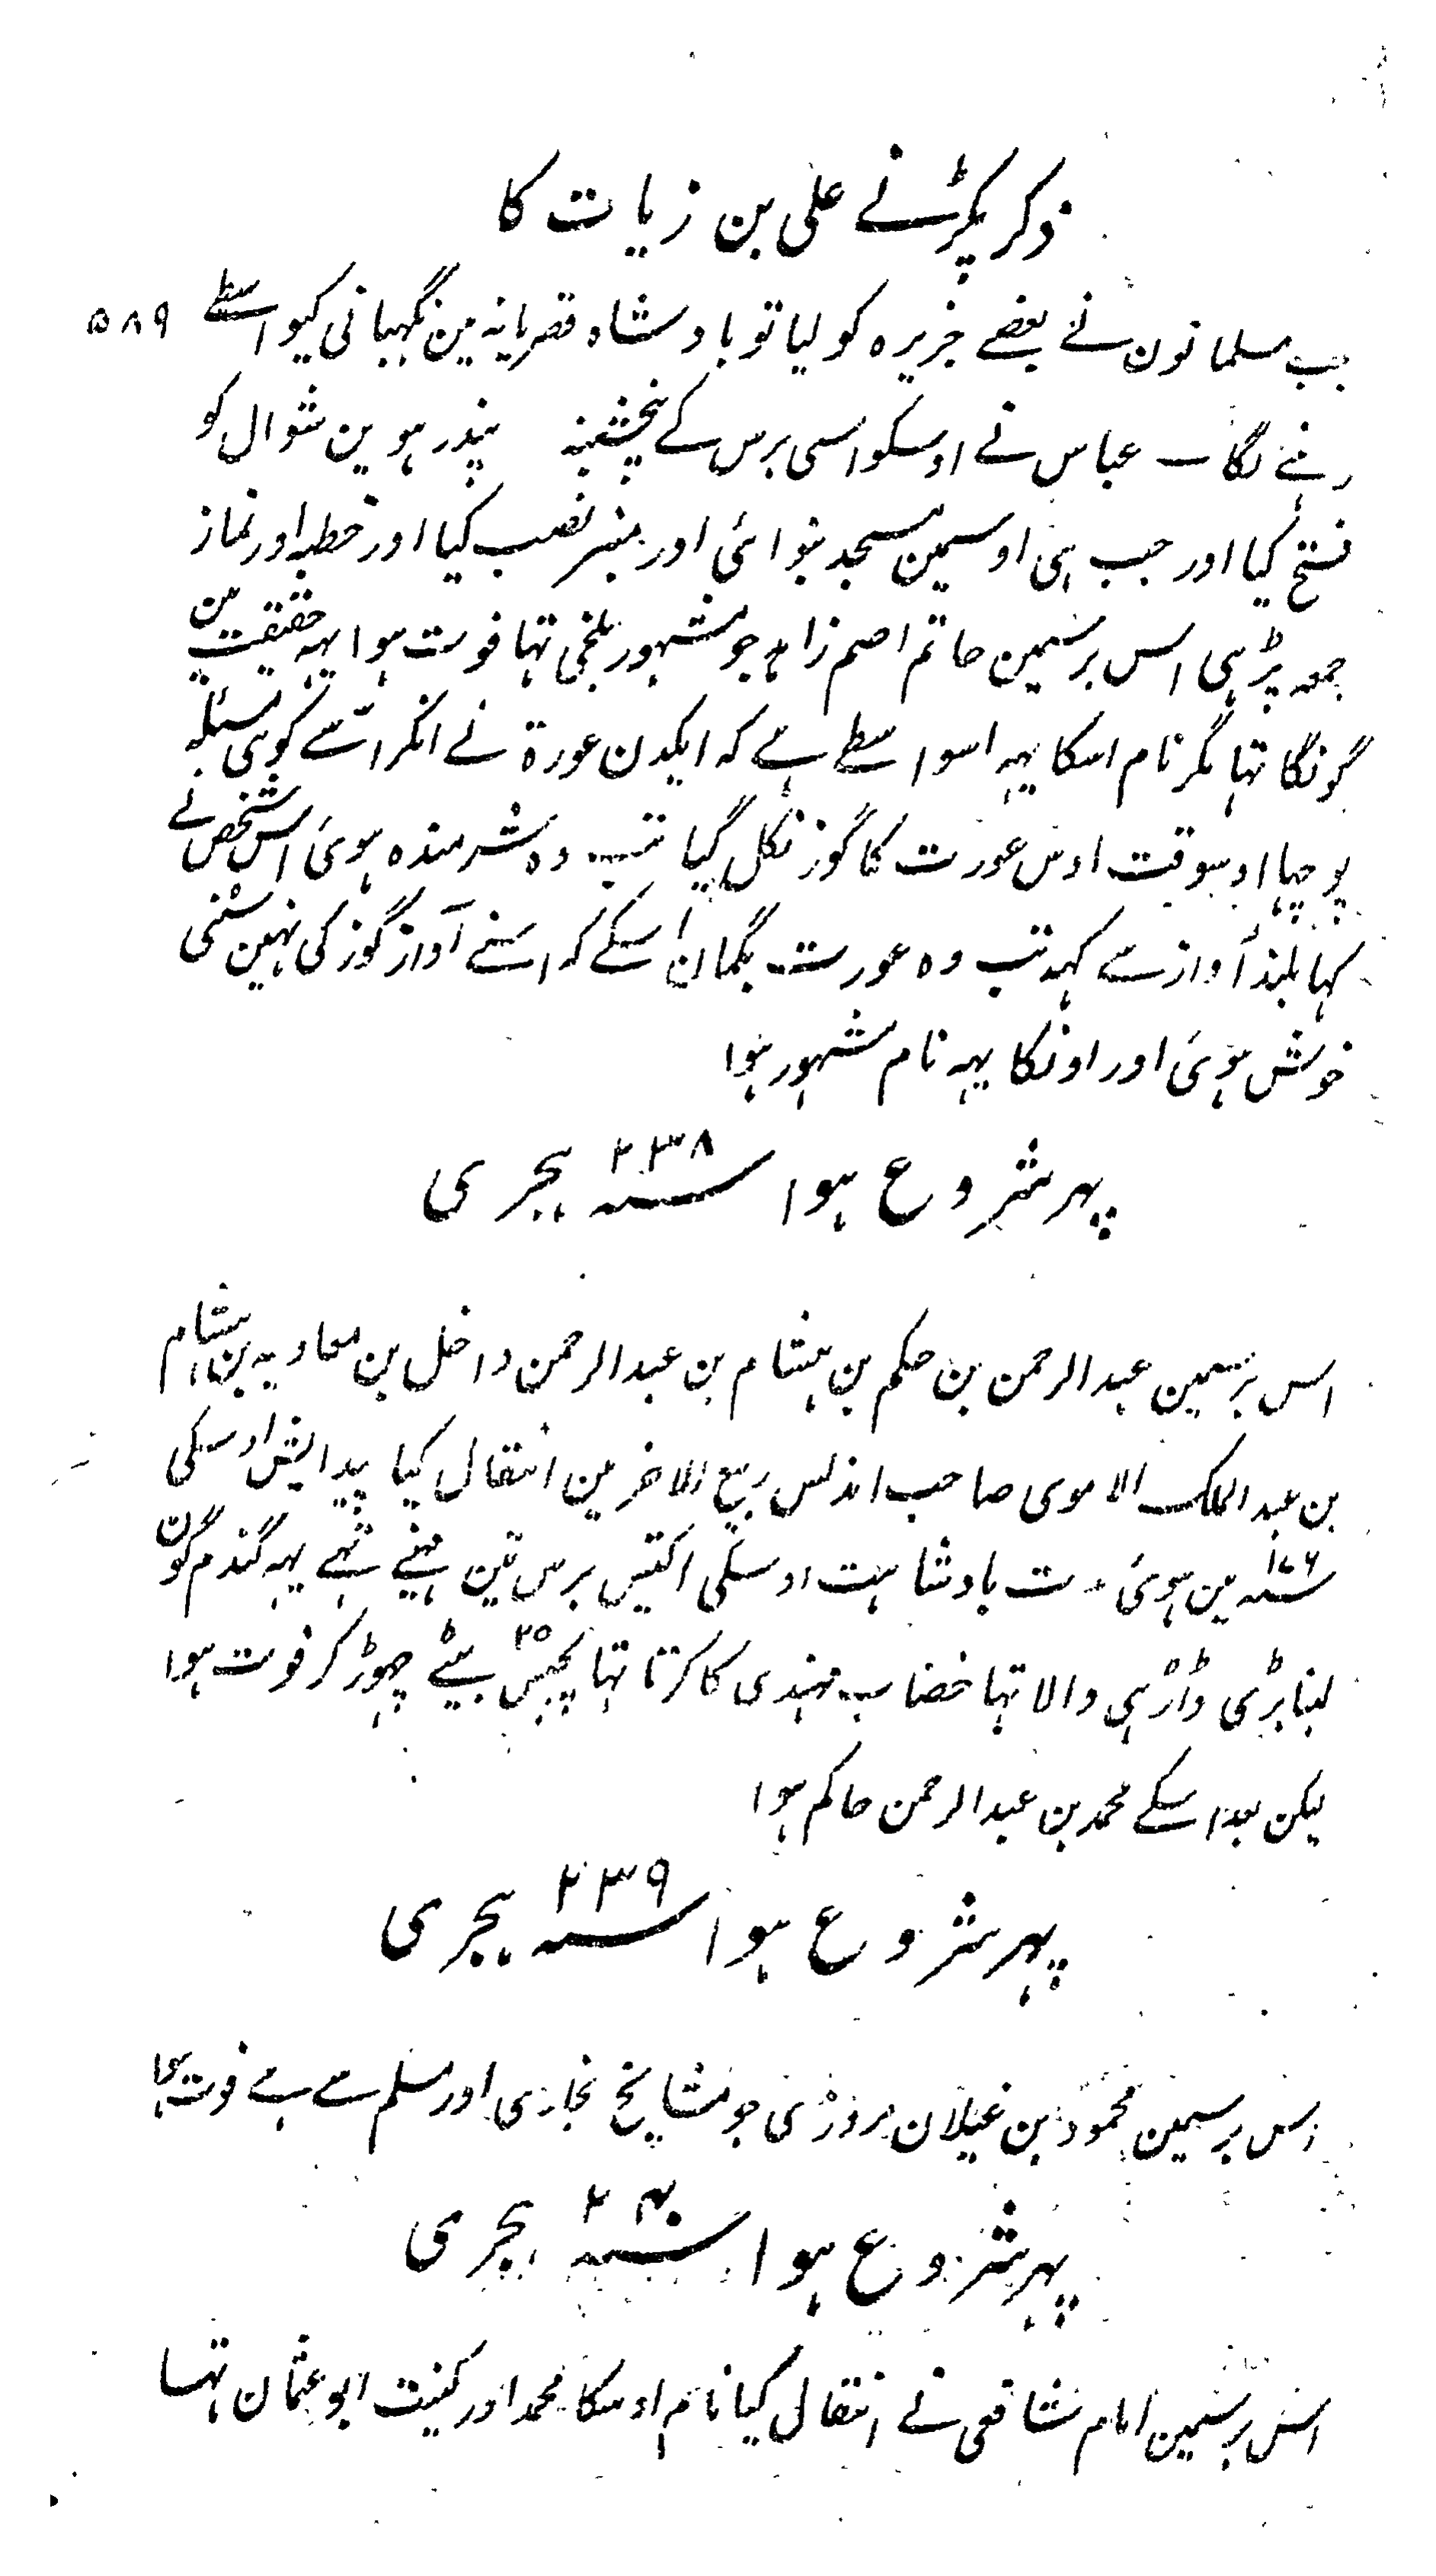 ذکر پکڑنے علی بن زیات کا
۵۸۹
جب مسلمانون نے بعضے جزیرہ کو لیا تو بادشاہ قصریانہ مین نگہبانی کیواسطے
رہنے لگا ۔ عباس نے اوسکو اسی برس کے پنجشنبہ پندرہوین شوال کو
فتح کیا اور جب ہی اوسمین مسجد بنوائی اور منبر نصب کیا اور خطبہ اور نماز
جمعہ پڑہی اس برسمین حاتم اصم زاہد جو مشہور بلخی تہا فوت ہوا یہہ حقیقت مین
گونگا نتہا مگر نام اسکا یہہ اسواسطے ہے کہ ایکدن عورۃ نے آنکر اسّے کوہی مسئلہ
پوچہا اوسوقت اوس عورت کا گوز نکل گیا تب وہ شرمندہ ہوئی اس شخص نے
کہا بلند آواز سے کہہ تب وہ عورت بگمان اسکے کہ اسنے آواز گوز کی نہین سنی
خوش ہوئی اور اونکا یہہ نام مشہور ہوا
پہر شروع ہوا سنہ ۲۳۸ ہجری
اس برسمین عبدالرحمن بن حکم بن ہشام بن عبدالرحمن داخل بن معاویہ بن ہشام
بن عبدالملک الاموی صاحب اندلس ربیع الاخر مین انتقال کیا پیدایش اوسکی
سنہ ۱۷۶ مین ہوئی مدت بادشاہت اوسکی اکتیس برس تین مہینے تہے یہہ گندم گون
لنبا بڑی ڈاڑہی والا تہا خضاب مہندی کا کرتا تہا پچیس ۲۵ بیٹے چہوڑ کر فوت ہوا
لیکن بعد اسکے محمد بن عبدالرحمن حاکم ہوا
پہر شروع ہوا سنہ ۲۳۹ ہجری
اس برسمین محمود بن غیلان مروزی جو مشایخ بخاری اور مسلم سے ہے فوت ہوا
پہر شروع ہوا سنہ ۲۴۰ ہجری
اس برسمین امام شافعی نے انتقال کیا نام اوسکا محمد اور کنیت ابو عثمان تہا